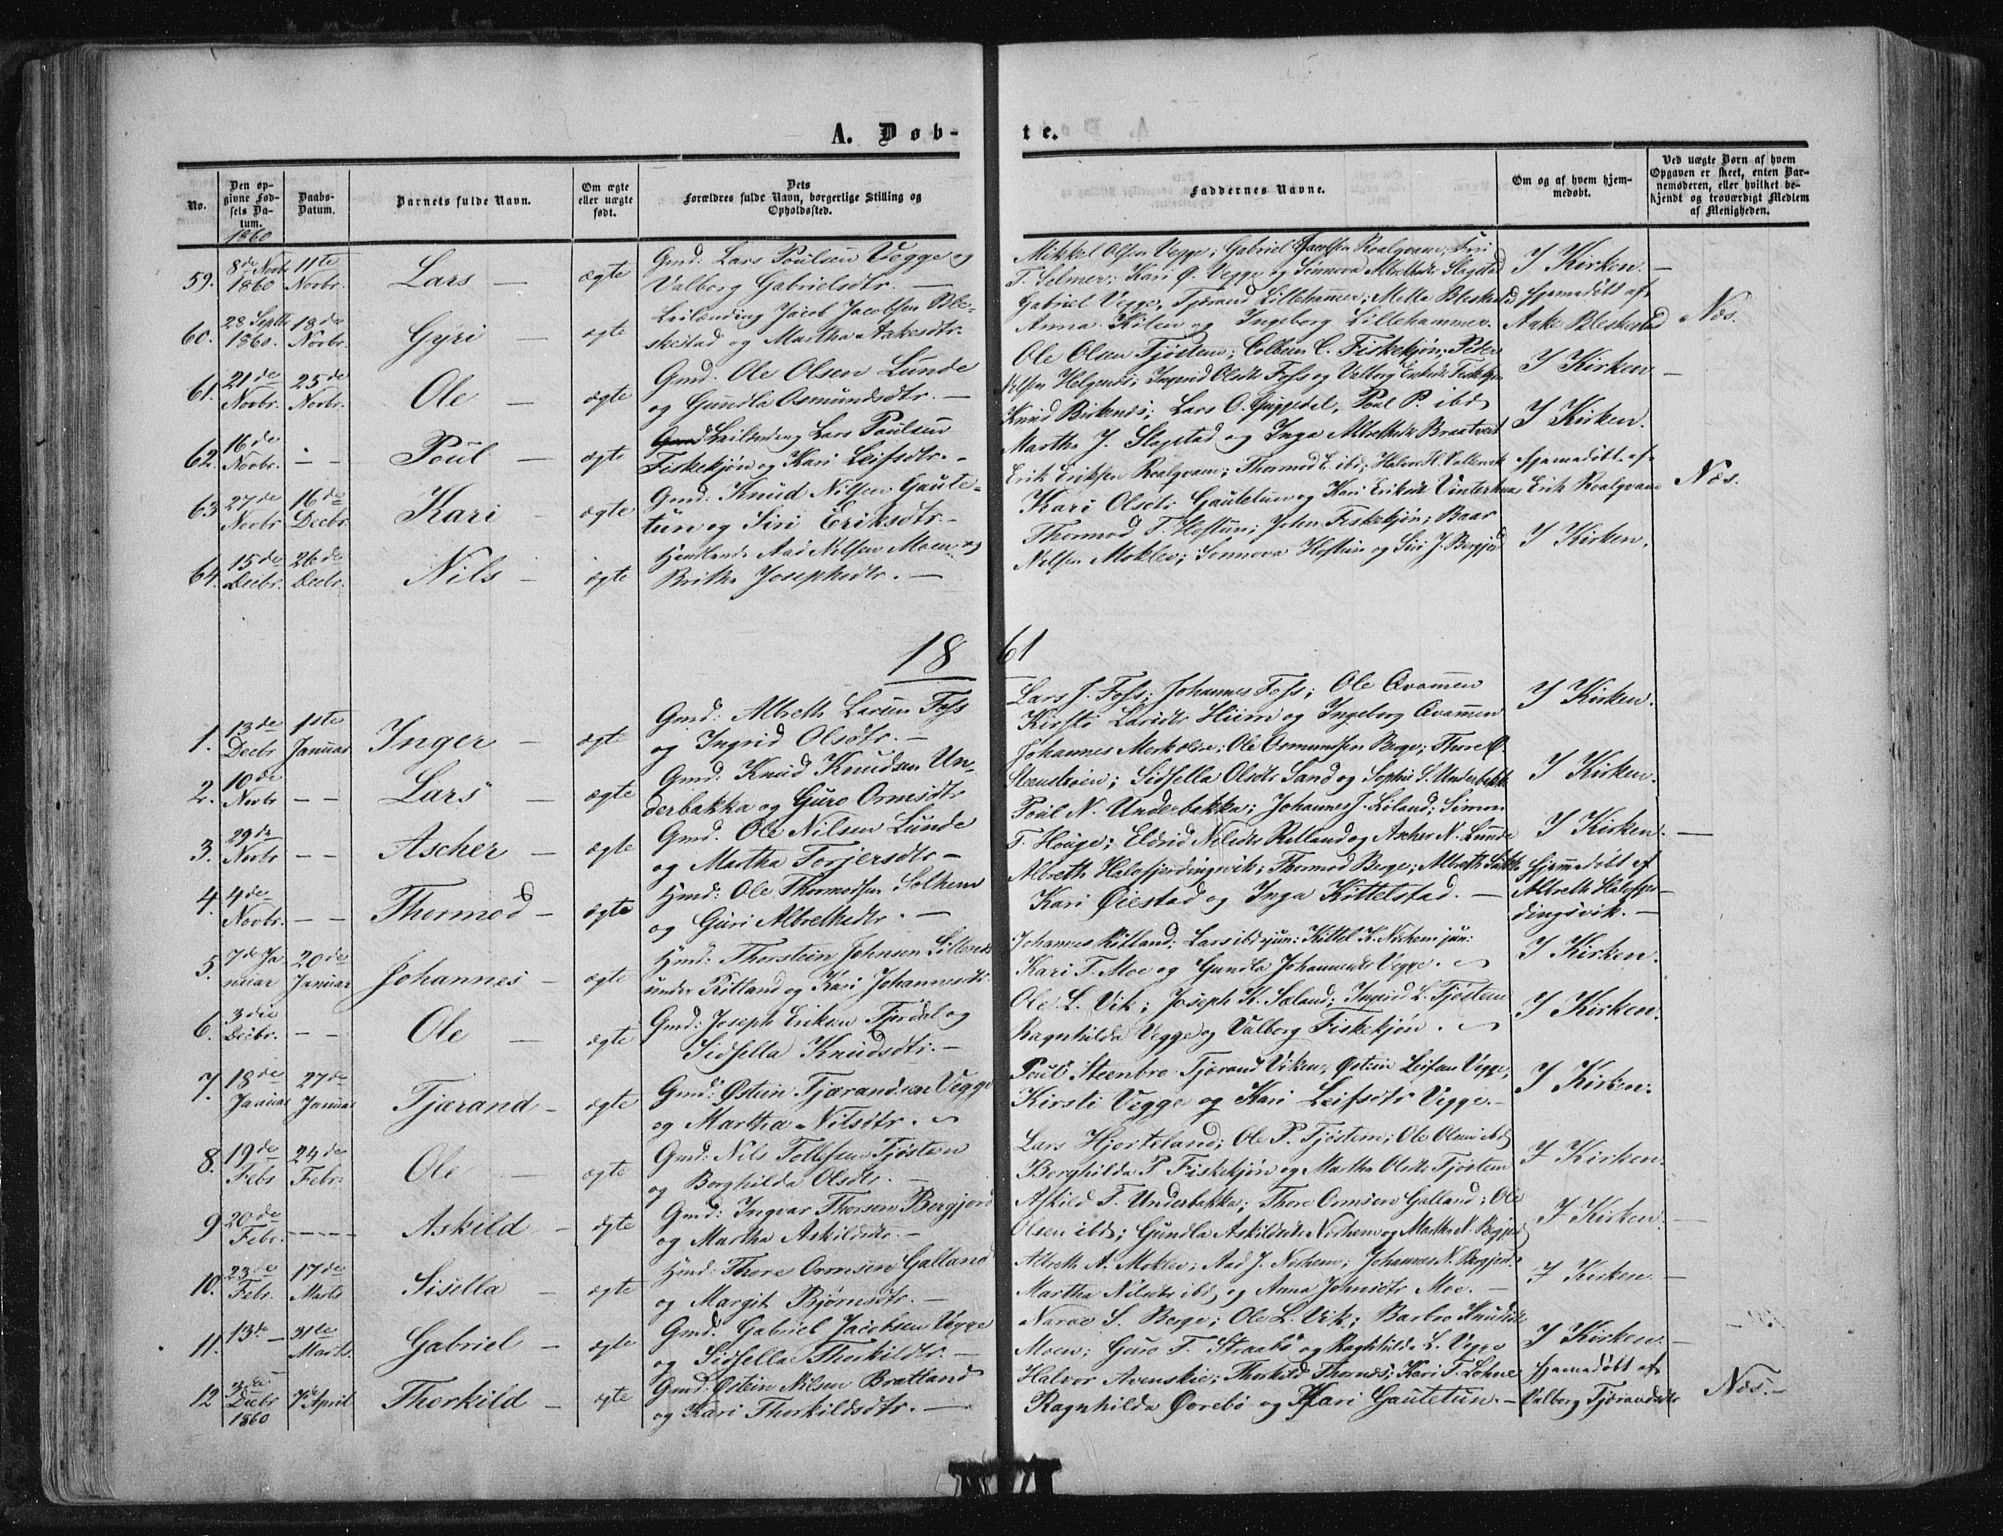 A. Døb-
te.
No.
Den op-
givne Fød-
sels Da-
tum.
Daabs-
Datum.
Barnets fulde Navn.
Om ægte
eller uægte
født.
Dets
Forældres fulde Navn, borgerlige Stilling og
Opholdssted.
Faddernes Navne.
Om og af hvem hjem-
medøbt.
Ved uægte Børn af hvem
Opgaven er skeet, enten Bar-
nemoderen, eller hvilket be-
kjendt og troværdigt Medlem
af Menigheden.
1860
59. 8de Novbr 1860 11te Novbr. Lars — ægte
Gmd: Lars Poulsen Vegge og
Valborg Gabrielsdtr. —
Mikkel Olsen Vegge; Gabriel Jacobsen Roalqvam; Siri
T. Selmer; Kari O. Vegge og Sønnova Albrethsdtr Slagstad
I Kirken. —
60. 28 Septbr 1860. 18de Novbr. Gyri — ægte
Leilænding Jacob Jacobsen Ble-
skestad og Martha Aakesdtr.
Gabriel Vegge, Tjærand Lillehammer; Metta Bleskestad
Anna Kilen og Ingeborg Lillehammer.
hjemmedøbt af
Aake Bleskestad
Næs.
61. 21de Novbr. 25de Novbr. Ole — ægte
Gmd: Ole Olsen Lunde
og Gundla Osmundsdtr. —
Ole Olsen Tjøsten; Colbein C. Fiskekjøn; Peder
Nelsen Helgenæs; Ingerid Olsdtr Foss og Valborg Eriksdtr Fiskekjøn
I Kirken —
62. 16de Novbr. - - Poul — ægte
Leilænding Lars Poulsen
Fiskekjøn og Kari Leifsdtr. -
Knud Birkenæs; Lars O. Guggedal, Poul P. ibd
Martha J. Slagstad og Inga Albrethsdtr Braatveit
I Kirken.
63 27de Novbr. 16de Decbr. Kari — ægte
Gmd: Knud Nilsen Gaute-
tun og Siri Eriksdtr. —
Erik Eriksen Roalqvam; Thormod E. ibd; Halvor H. Vallervik
Kari Olsdtr Gautetun og Kari Eriksdtr Vinterhuus
hjemmedøbt af
Erik Roalqvam
Næs.
64. 15de Decbr. 26de Decbr. Nils — ægte
Aad Nilsen Moen og
Britha Josephsdtr. —
Thormod T. Høftun; John Fiskekjøn; Baar
Nelsen Moklev; Sønnova Høftun og Siri J. Bergjord
I Kirken.
1861
1. 13de Decbr 1ste Januar Inger — ægte
Gmd: Albreth Larsen Foss
og Ingrid Olsdtr. —
Lars J. Foss; Johannes Foss; Ole Qvamen
Kirsti Larsdtr Hiim og Ingeborg Qvamen
I Kirken.
2. 10de Novbr - - Lars — ægte
Gmd: Knud Knudsen Un-
derbakka og Guro Ormsdtr
Johannes Merkelie; Ole Osmundsen Berge; Thore O.
Steenstøien; Sidsella Olsdtr Sand og Sophie S. Underbakke
I Kirken.
3. 29de Novbr - - Ascher — ægte
Gmd. Ole Nilsen Lunde
og Martha Torjersdtr —
Poul N. Underbakka; Johannes J. Løland; Simon
T. Houge; Eldrid Nilsdtr Rølland og Ascher N. Lunde
I Kirken. —
4. 4de Novbr. - - Thormod — ægte
Hmd: Ole Thormodsen Solheim
og Guri Albrethsdtr. —
Albreth Halsfjordingsvik; Thormod Berge; Albreth
Kari Øiestad og Inga Kittelstad. —
hjemmedøbt af
Albreth Halsfjor-
dingsvik. —
5. 7de Ja nuar 20de Januar Johannes — ægte
Hmd: Thorstein Johnsen Lillenæs
under Ritland og Kari Johannesdtr.
Johannes Ritland: Lars ibd jun: Kittel K. Norheim jun:
Kari T. Moe og Gundla Johannesdtr Vegge.
I Kirken.
6. 3die Decbr. - - Ole — ægte
Gmd: Joseph Eriksen Fjordal og
Sidsella Knudsdtr. —
Ole L. Vik; Joseph K. Sæland; Ingrid L. Tjøsten
Ragnhilda Vegge og Valborg Fiskekjøn.
I Kirken.
7. 18de Januar 27de Januar Tjærand — ægte
Gmd: Østein Tjærandsen Vegge
og Martha Nilsdtr.
Poul Steenbro Tjærand Viken; Østein Leifsen Vegge,
Kirsti Vegge og Kari Leifsdtr Vegge. —
I Kirken.
8. 19de Febr 24de Febr. Ole — ægte
Gmd: Nils Tollefsen Tjøsten
og Borghilda Olsdtr. —
Lars Hjorteland; Ole P. Tjøsten; Ole Olsen ibd
Borghilda P. Fiskekjøn og Martha Olsdtr Tjøsten
I Kirken.
9 20de Febr. - - - Askild — ægte
Gmd: Ingvar Thorsen Bergjord
og Martha Askildsdtr. —
Askild T. Underbakka; Thore Ormsen Galland; Ole
Olsen ibd; Gundla Askildsdtr Norheim og Martha N. Bergjord
I Kirken. —
10. 23de Febr. 17de Marts Sisella — ægte
Hmd: Thore Ormsen Galland
og Margit Bjørnsdtr. —
Albreth A. Moklev; Aad J. Norheim; Johannes N. Bergjord
Martha Nilsdtr ibd og Anna Johnsdtr Moe. —
I Kirken. —
11. 13de — 31te Marts. Gabriel — ægte
Gmd. Gabriel Jacobsen Vegge
og Sidsella Thorkildtr. —
Narve S. Berge; Ole L. Vik; Barbro Knudsdtr
Moen; Guro T. Straabø og Ragnhilda L. Vegge
I Kirken. —
12 3die Decbr 1860 7de April Thorkild — ægte
Gmd: Østein Nilsen Bratland
og Kari Thorkildsdtr. —
Halvor Avenskie; Thorkild Thornæs; Kari T. Lohne
Ragnhilda Ørebø og Kari Gautetun. —
hjemmedøbt af
Valborg Tjærandsdtr
Næs. —